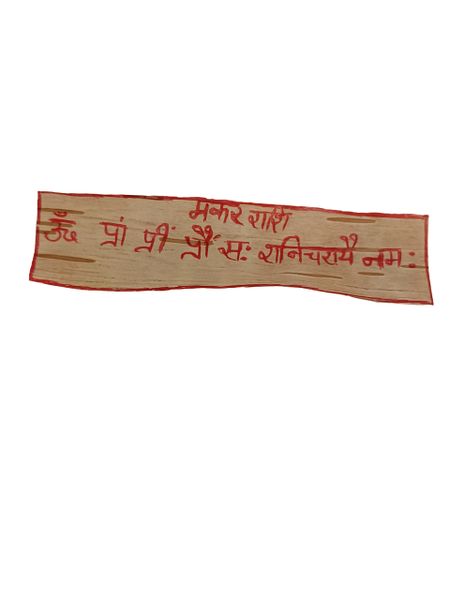 मकर राशि
ॐ प्रां प्रीं प्रौं सः शनिचरायै नमः